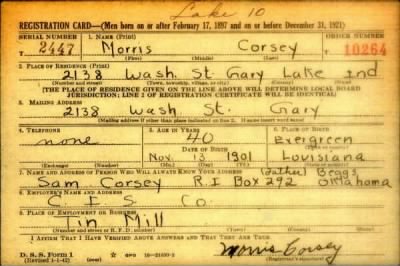 Lake 10
REGISTRATION CARD—(Men born on or after February 17, 1897 and on or before December 31, 1921)
SERIAL NUMBER 1. NAME (Print) ORDER NUMBER
T 2447 Morris Corsey 10264
(First) (Middle) (Last)
2. PLACE OF RESIDENCE (Print)
2138 Wash. St. Gary Lake Ind
(Number and street) (Town, township, village, or city) (County) (State)
[THE PLACE OF RESIDENCE GIVEN ON THE LINE ABOVE WILL DETERMINE LOCAL BOARD
JURISDICTION; LINE 2 OF REGISTRATION CERTIFICATE WILL BE IDENTICAL]
3. MAILING ADDRESS
2138 Wash St. Gary
(Mailing address if other than place indicated on line 2. If same insert word same)
4. TELEPHONE 5. AGE IN YEARS 6. PLACE OF BIRTH
none 40 Evergreen
DATE OF BIRTH (Town or county)
Nov. 13 1901 Louisiana
(Exchange) (Number) (Mo.) (Day) (Yr.) (State or country)
7. NAME AND ADDRESS OF PERSON WHO WILL ALWAYS KNOW YOUR ADDRESS
(father) Beggs
Sam Corsey R.I Box 292 Oklahoma
8. EMPLOYER'S NAME AND ADDRESS
C I S Co.
9. PLACE OF EMPLOYMENT OR BUSINESS
in Mill
(Number and street or R. F. D. number) (Town) (County) (State)
I AFFIRM THAT I HAVE VERIFIED ABOVE ANSWERS AND THAT THEY ARE TRUE.
D. S. S. Form 1
(Revised 1-1-42) GPO 16-21630-2
Morris Corsey